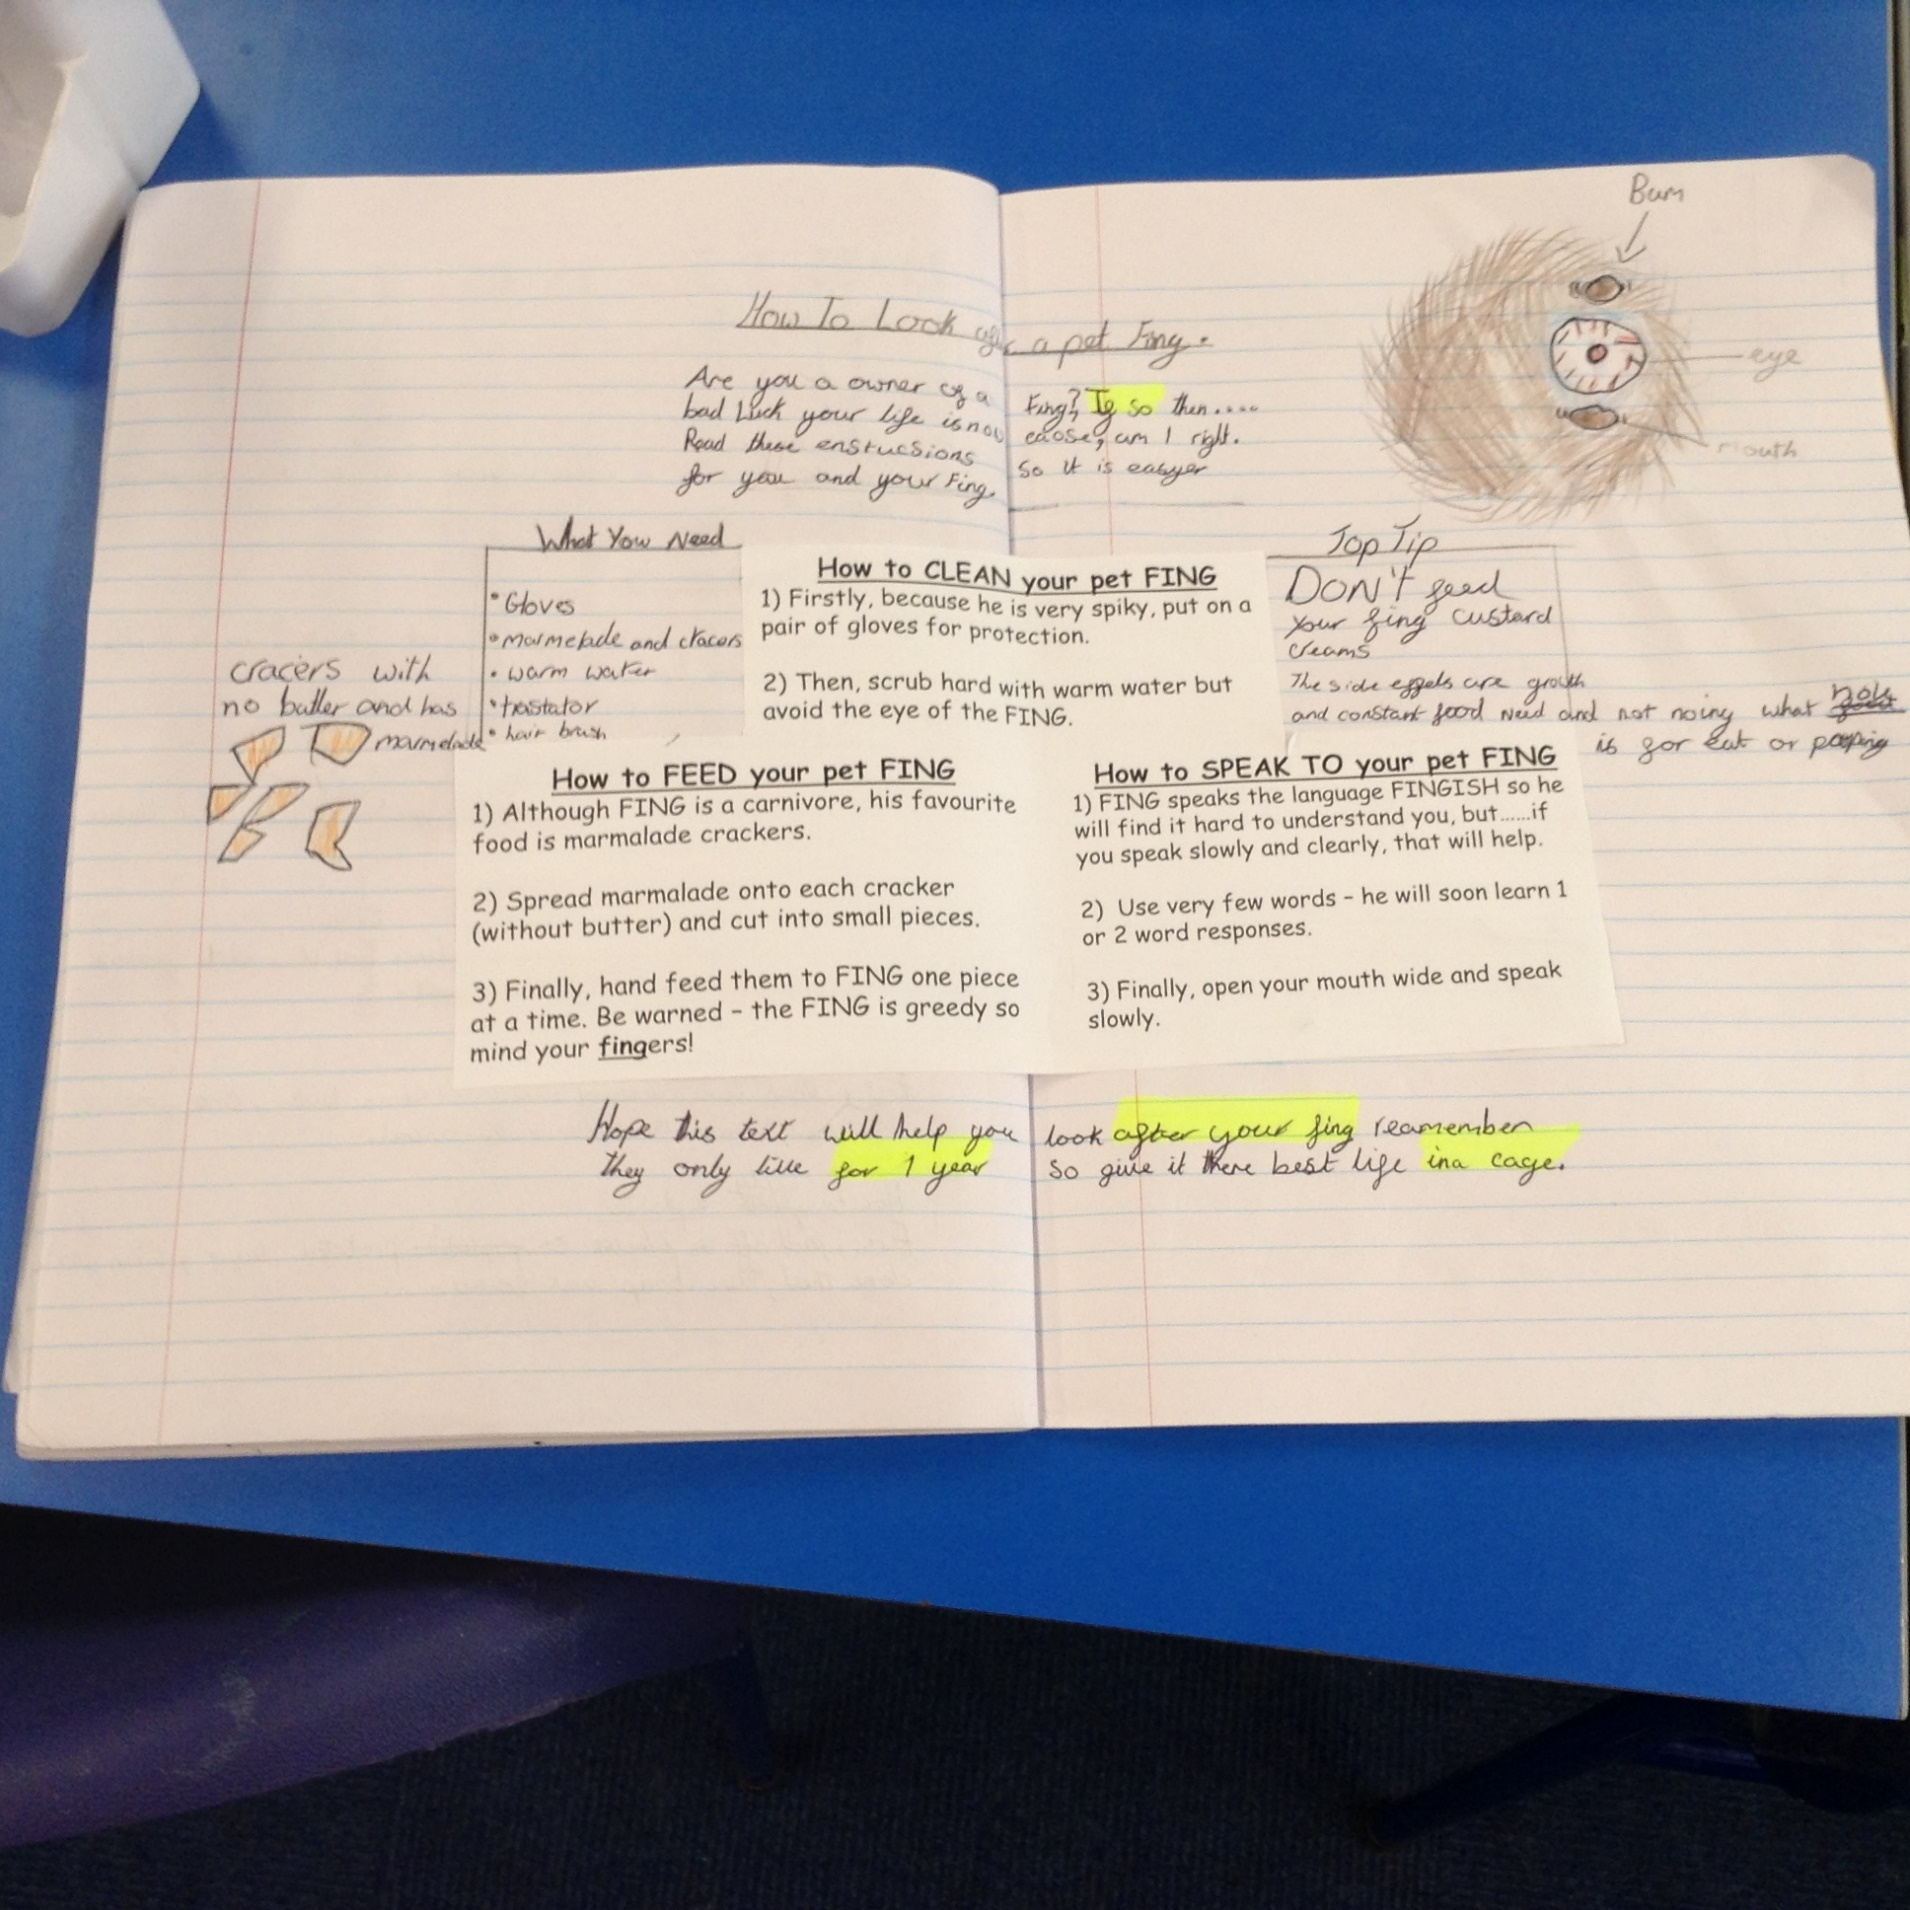 Bum
How To Look after a pet Fing.
Are you a owner of a Fing? If so then....
bad luck your life is now eaose, am I right.
Read these enstucsions so it is easyer
for you and your Fing.
eye
mouth
What You Need
• Gloves
• marmelade and cracers
• warm water
• trastator
• hair brush
cracers with
no butter and has
marmelade
How to CLEAN your pet FING
1) Firstly, because he is very spiky, put on a
pair of gloves for protection.
2) Then, scrub hard with warm water but
avoid the eye of the FING.
Top Tip
DON'T feed
your fing custard
creams
The side effets are grouth
and constant food need and not noing what hole
is for eat or pooping
How to FEED your pet FING
1) Although FING is a carnivore, his favourite
food is marmalade crackers.
2) Spread marmalade onto each cracker
(without butter) and cut into small pieces.
3) Finally, hand feed them to FING one piece
at a time. Be warned – the FING is greedy so
mind your fingers!
How to SPEAK TO your pet FING
1) FING speaks the language FINGISH so he
will find it hard to understand you, but......if
you speak slowly and clearly, that will help.
2) Use very few words – he will soon learn 1
or 2 word responses.
3) Finally, open your mouth wide and speak
slowly.
Hope this text will help you look after your fing reamember
they only live for 1 year so give it there best life ina cage.